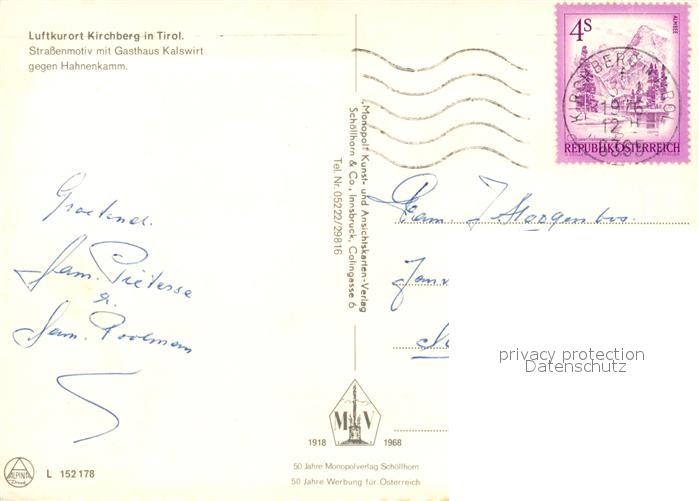 Luftkurort Kirchberg in Tirol.
Straßenmotiv mit Gasthaus Kalswirt
gegen Hahnenkamm.
4S
ALMSEE
REPUBLIK ÖSTERREICH
KIRCHBERG TIROL
„Monopol“ Kunst- und Ansichtskarten-Verlag
Schöllhorn & Co., Innsbruck, Colingasse 6
Tel. Nr. 05222/29816
Fam. Pieterse
Fam. Poolman
Fam. J
privacy protection
Datenschutz
M V
1918 1968
50 Jahre Monopolverlag Schöllhorn
50 Jahre Werbung für Österreich
ALPINA
Druck
L 152178